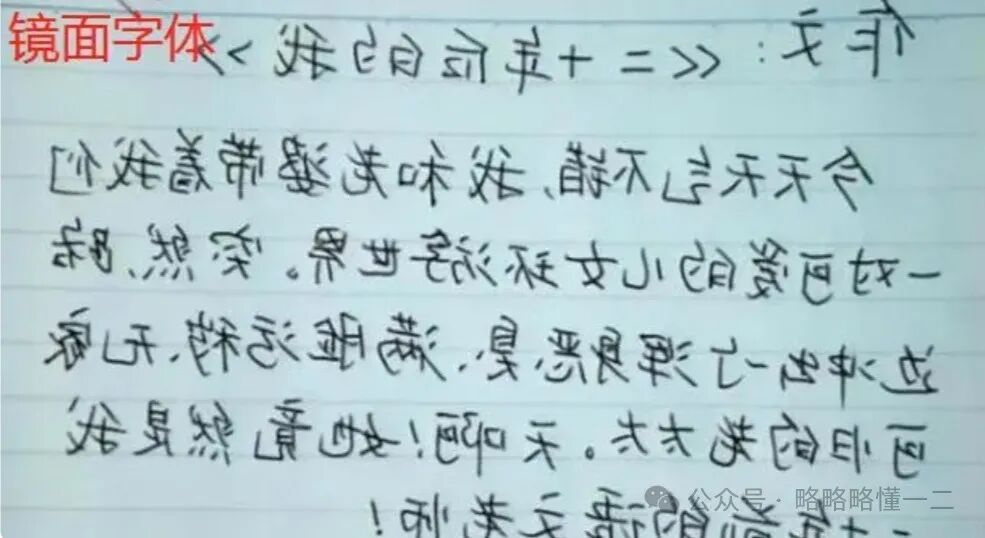 镜面字体
作文：《二十年后的我》
今天天气不错，我和老婆带着我们
一对可爱的儿女环游世界。突然，路
边冲出一个浑身恶臭，满脸污秽，无家
可归的老太太。天啊！她竟然是我
二十年前的语文老师！
公众号·略略略懂一二